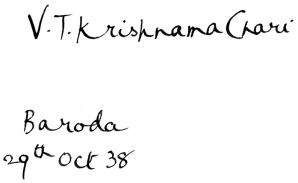 V. T. Krishnama Chari
Baroda
29th Oct 38